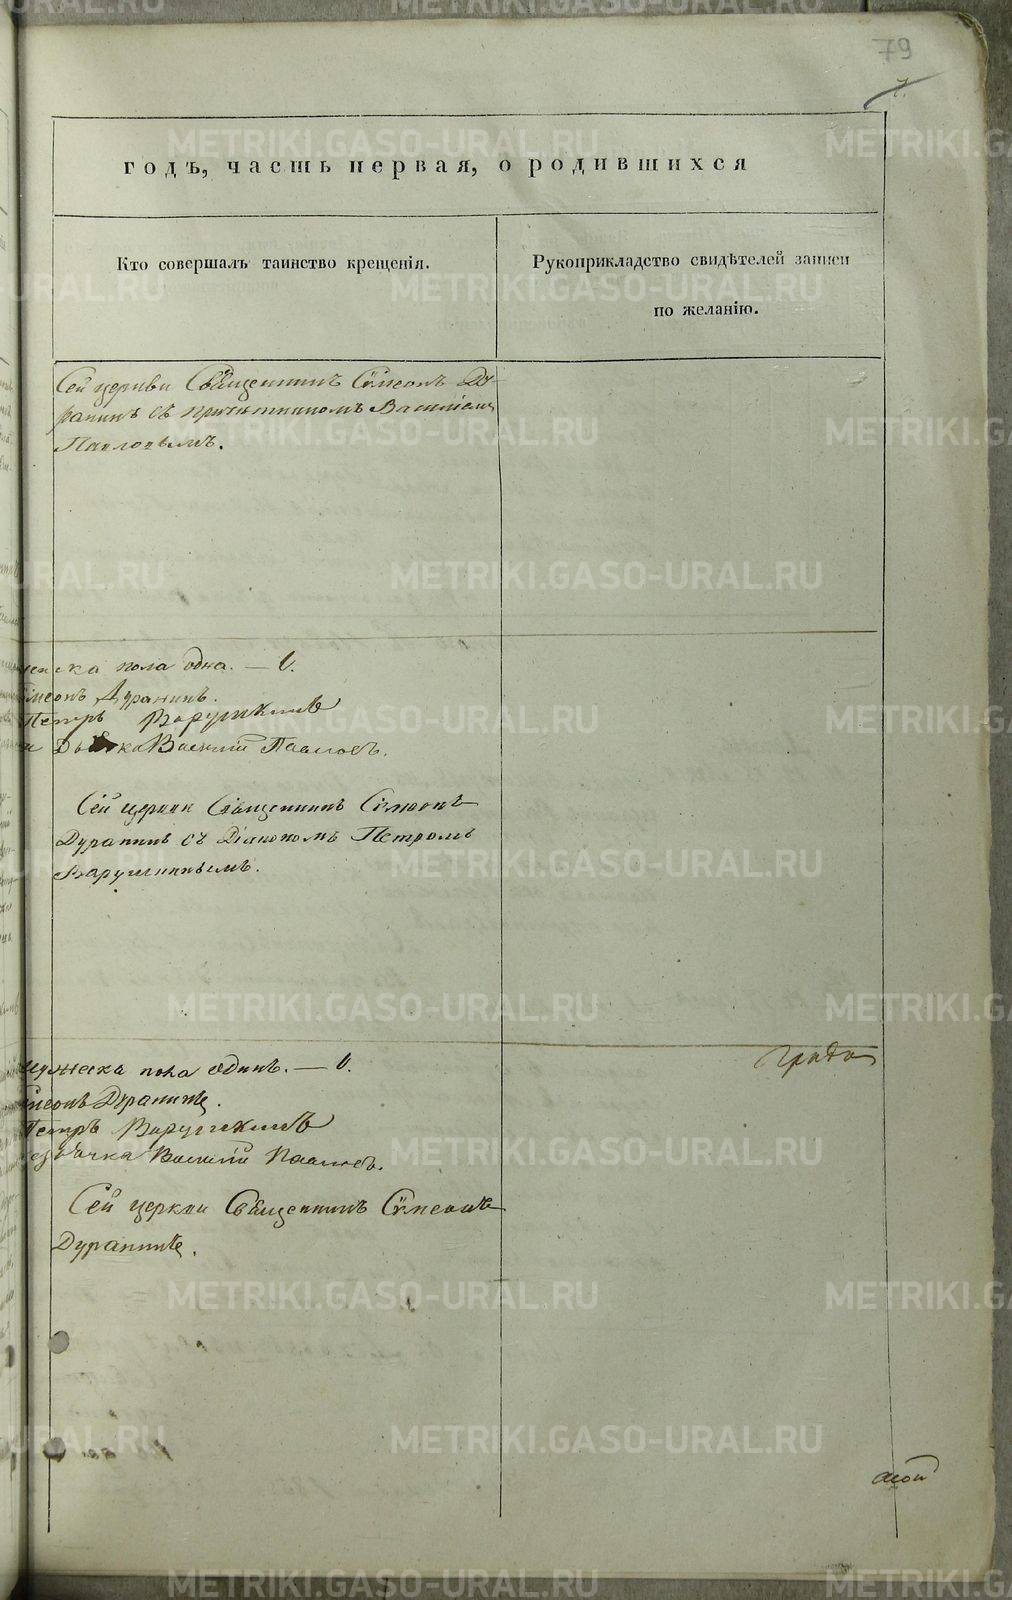 79
7.
годъ, часть первая, о родившихся
Кто совершалъ таинство крещенія.
Рукоприкладство свидѣтелей записи
по желанію.
Сей церкви Священникъ Сѵмеонъ Ду-
ранинъ съ причетникомъ Василіемъ
Павловымъ.
женска пола одна. — 1.
Сѵмеонъ Дуранинъ.
Петръ Варушкинъ
Дьячка Василій Павловъ.
Сей церкви Священникъ Сѵмеонъ
Дуранинъ съ Діакономъ Петромъ
Варушкинымъ.
мужеска пола одинъ. — 1.
Сѵмеонъ Дуранинъ.
Петръ Варушкинъ
Дьячка Василій Павловъ.
Сей церкви Священникъ Сѵмеонъ
Дуранинъ.
METRIKI.GASO-URAL.RU